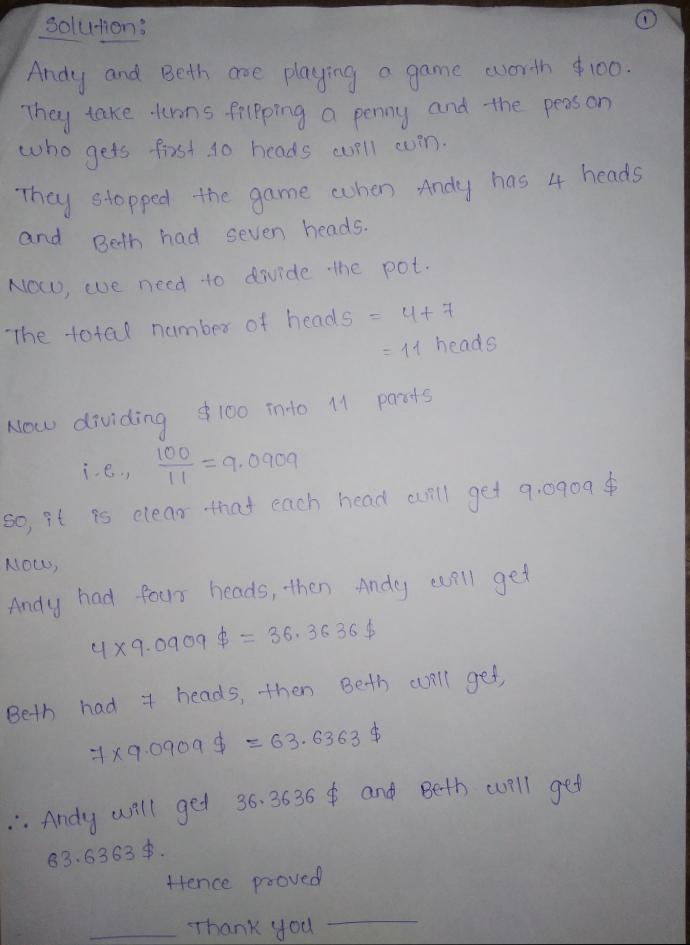 Solution:
1
Andy and Beth are playing a game worth $100.
They take turns filpping a penny and the person
who gets first 10 heads will win.
They stopped the game when Andy has 4 heads
and Beth had seven heads.
Now, we need to divide the pot.
The total number of heads = 4+7
= 11 heads
Now dividing $100 into 11 parts
i.e., 100/11 = 9.0909
So, it is clear that each head will get 9.0909 $
Now,
Andy had four heads, then Andy will get
4×9.0909 $ = 36.3636 $
Beth had 7 heads, then Beth will get,
7×9.0909 $ = 63.6363 $
∴ Andy will get 36.3636 $ and Beth will get
63.6363 $.
Hence proved
Thank you